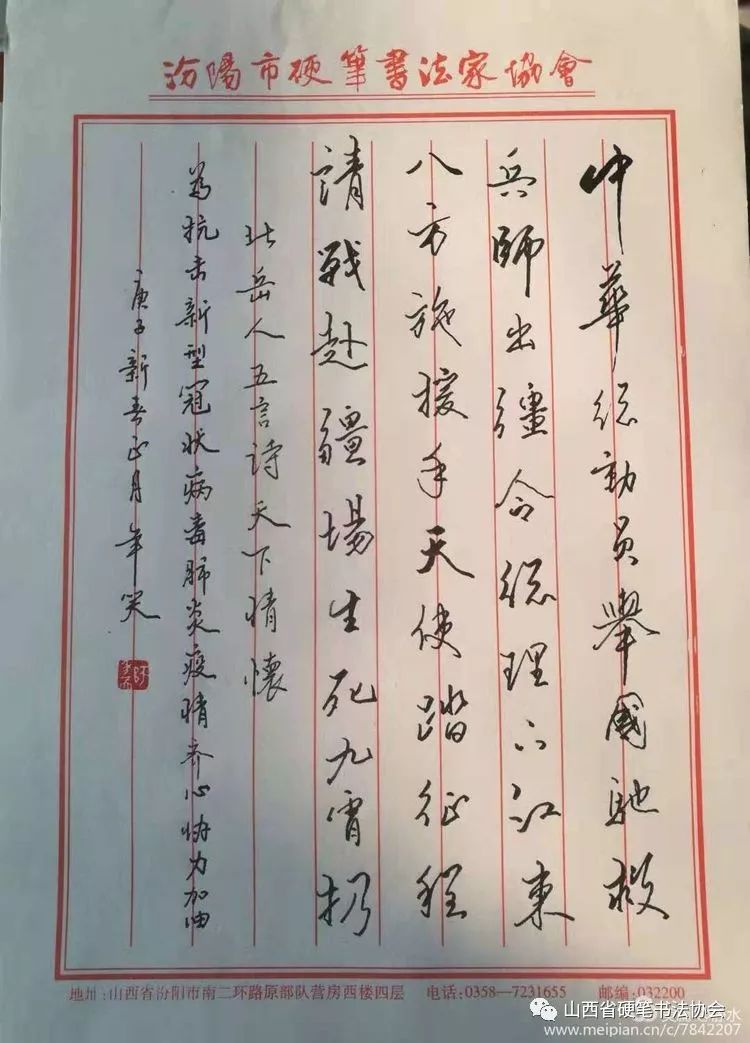 汾陽市硬筆書法家協會
中華總動員舉國馳救
兵師出疆令總理下江東
八方施援手天使踏征程
請戰赴疆場生死九霄扔
北岳人五言詩天下情懷
為抗击新型冠状病毒肺炎疫情齐心协力加油
庚子新春正月年笑
地址:山西省汾阳市南二环路原部队营房西楼四层 电话:0358—7231655 邮编:032200
山西省硬笔书法协会
www.meipian.cn/c/7842207